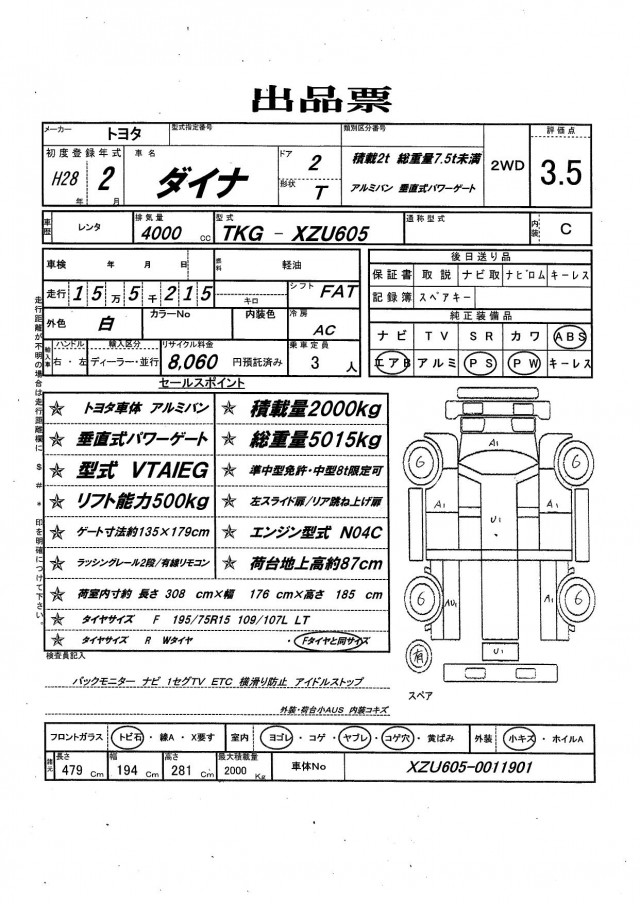 出品票
メーカー トヨタ 型式指定番号 類別区分番号 評価点
初度登録年式 車名 ドア 2 積載2t 総重量7.5t未満 2WD 3.5
H28 年 2 月 ダイナ 形状 T アルミバン 垂直式パワーゲート
車歴 レンタ 排気量 4000 cc 型式 TKG - XZU605 通称型式 内装 C
車検 年 月 日 燃料 軽油 後日送り品
保証書 取説 ナビ取 ナビロム キーレス
走行 1 5 万 5 千 2 1 5 キロ シフト FAT 記録簿 スペアキー
純正装備品
外色 白 カラーNo 内装色 冷房 AC ナビ TV SR カワ ABS
輸入車 ハンドル 右・左 輸入区分 ディーラー・並行 リサイクル料金 8,060 円預託済み 乗車定員 3 人 エアB アルミ PS PW キーレス
走行距離が不明の場合は走行距離欄に $ # * 印を明確につけて下さい。
セールスポイント
☆ トヨタ車体 アルミバン ☆ 積載量2000kg
☆ 垂直式パワーゲート ☆ 総重量5015kg
☆ 型式 VTAIEG ☆ 準中型免許・中型8t限定可
☆ リフト能力500kg ☆ 左スライド扉/リア跳ね上げ扉
☆ ゲート寸法約135×179cm ☆ エンジン型式 N04C
☆ ラッシングレール2段/有線リモコン ☆ 荷台地上高約87cm
☆ 荷室内寸約 長さ 308 cm×幅 176 cm×高さ 185 cm
☆ タイヤサイズ F 195/75R15 109/107L LT
☆ タイヤサイズ R Wタイヤ ・ Fタイヤと同サイズ
A1
6 6
A1 U1 A1
U1
6 AU1 A1 6
有 U1
スペア
検査員記入
バックモニター ナビ 1セグTV ETC 横滑り防止 アイドルストップ
外装・荷台小AUS 内装コキズ
フロントガラス トビ石・線A・X要す 室内 ヨゴレ・コゲ・ヤブレ・コゲ穴・黄ばみ 外装 小キズ・ホイルA
諸元 長さ 479 Cm 幅 194 Cm 高さ 281 Cm 最大積載量 2000 Kg 車体No XZU605-0011901